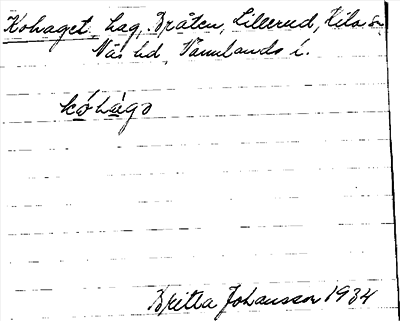 Kohaget, hag, Bråten, Lillerud, Kila sn,
Näs hd, Värmlands l.
kóhàgə
Britta Johansson 1934